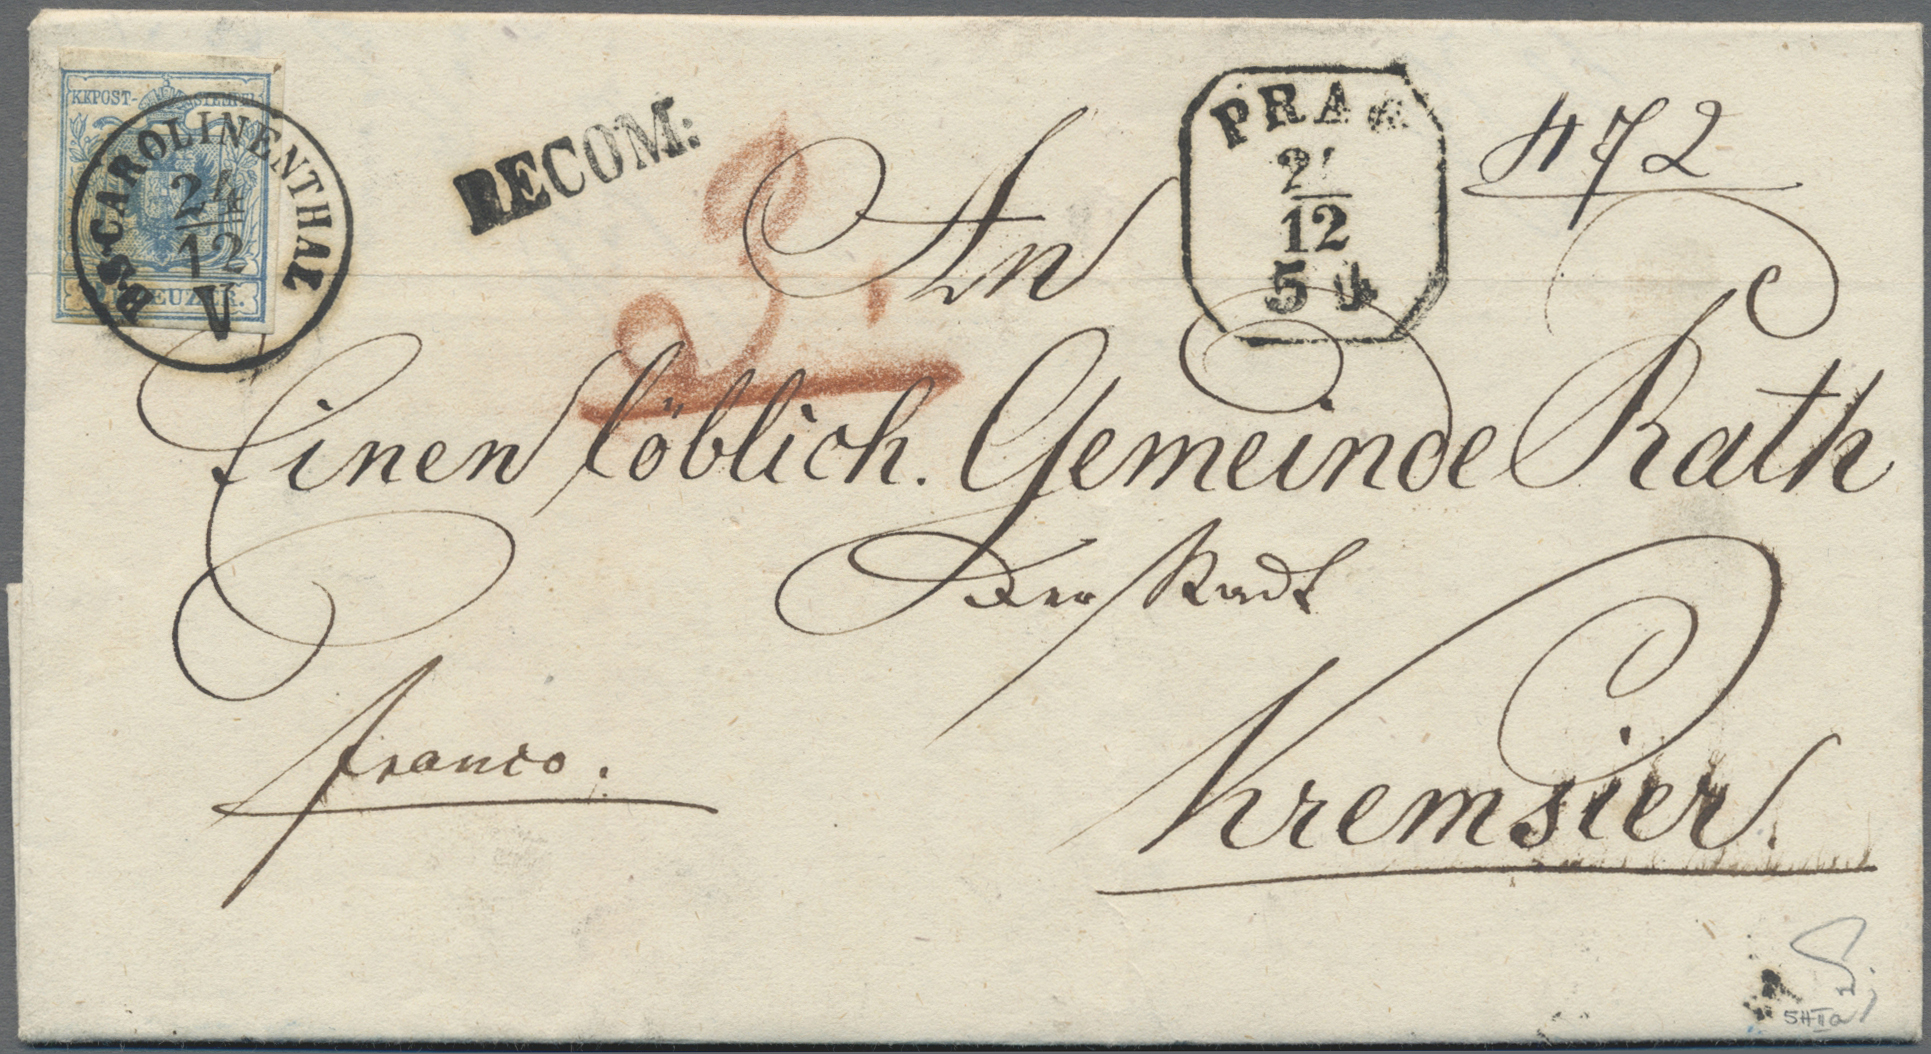 KKPOST-STEMPEL
P.S. CAROLINENTHAL
24
12
V
RECOM:
PRAG
24
12
5 4
472
An
Einen löblich. Gemeinde Rath
der Stadt
Kremsier.
franco.
5HIIa